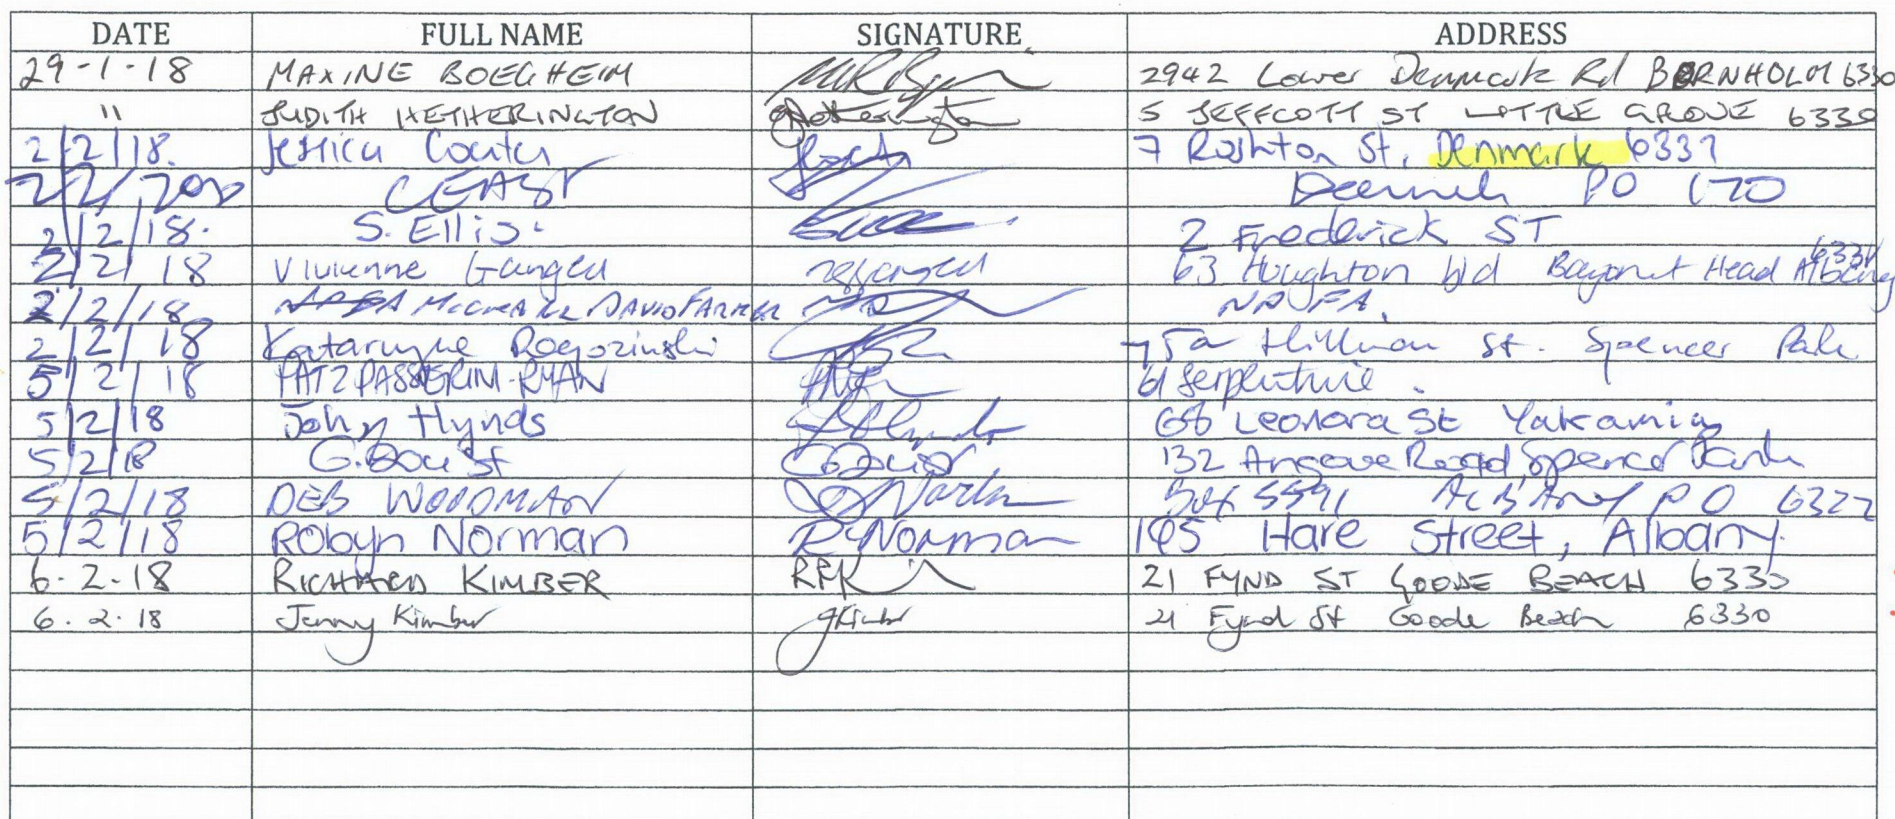 DATE FULL NAME SIGNATURE ADDRESS
29-1-18 MAXINE BOEGHEIM 2942 Lower Denmark Rd BORNHOLM 6330
" JUDITH HETHERINGTON 5 JEFFCOTT ST LITTLE GROVE 6330
2/2/18. Jessica 7 St, Denmark 6333
2/2/ PO
2/2/18. S. Ellis. 2 Frederick ST
2/2/18 Vivienne 63 Houghton bvd Bayonet Head Albany 6330
2/2/18 DAVID FARMER
2/2/18 Katarzyna Rogozinski 75a Hillman St. Spencer Park
5/2/18 61 Serpentine.
5/2/18 John Hynds 66 Leonora St Yakamia
5/2/18 132 Angove Road, Spencer Park
5/2/18 DEB WOODMAN Box 5591 ALBANY PO 6332
5/2/18 Robyn Norman R Norman 195 Hare Street, Albany.
6-2-18 RICHARD KIMBER RPK 21 FYND ST GOODE BEACH 6330
6.2.18 Jenny Kimber JKimber 21 Fynd St Goode Beach 6330